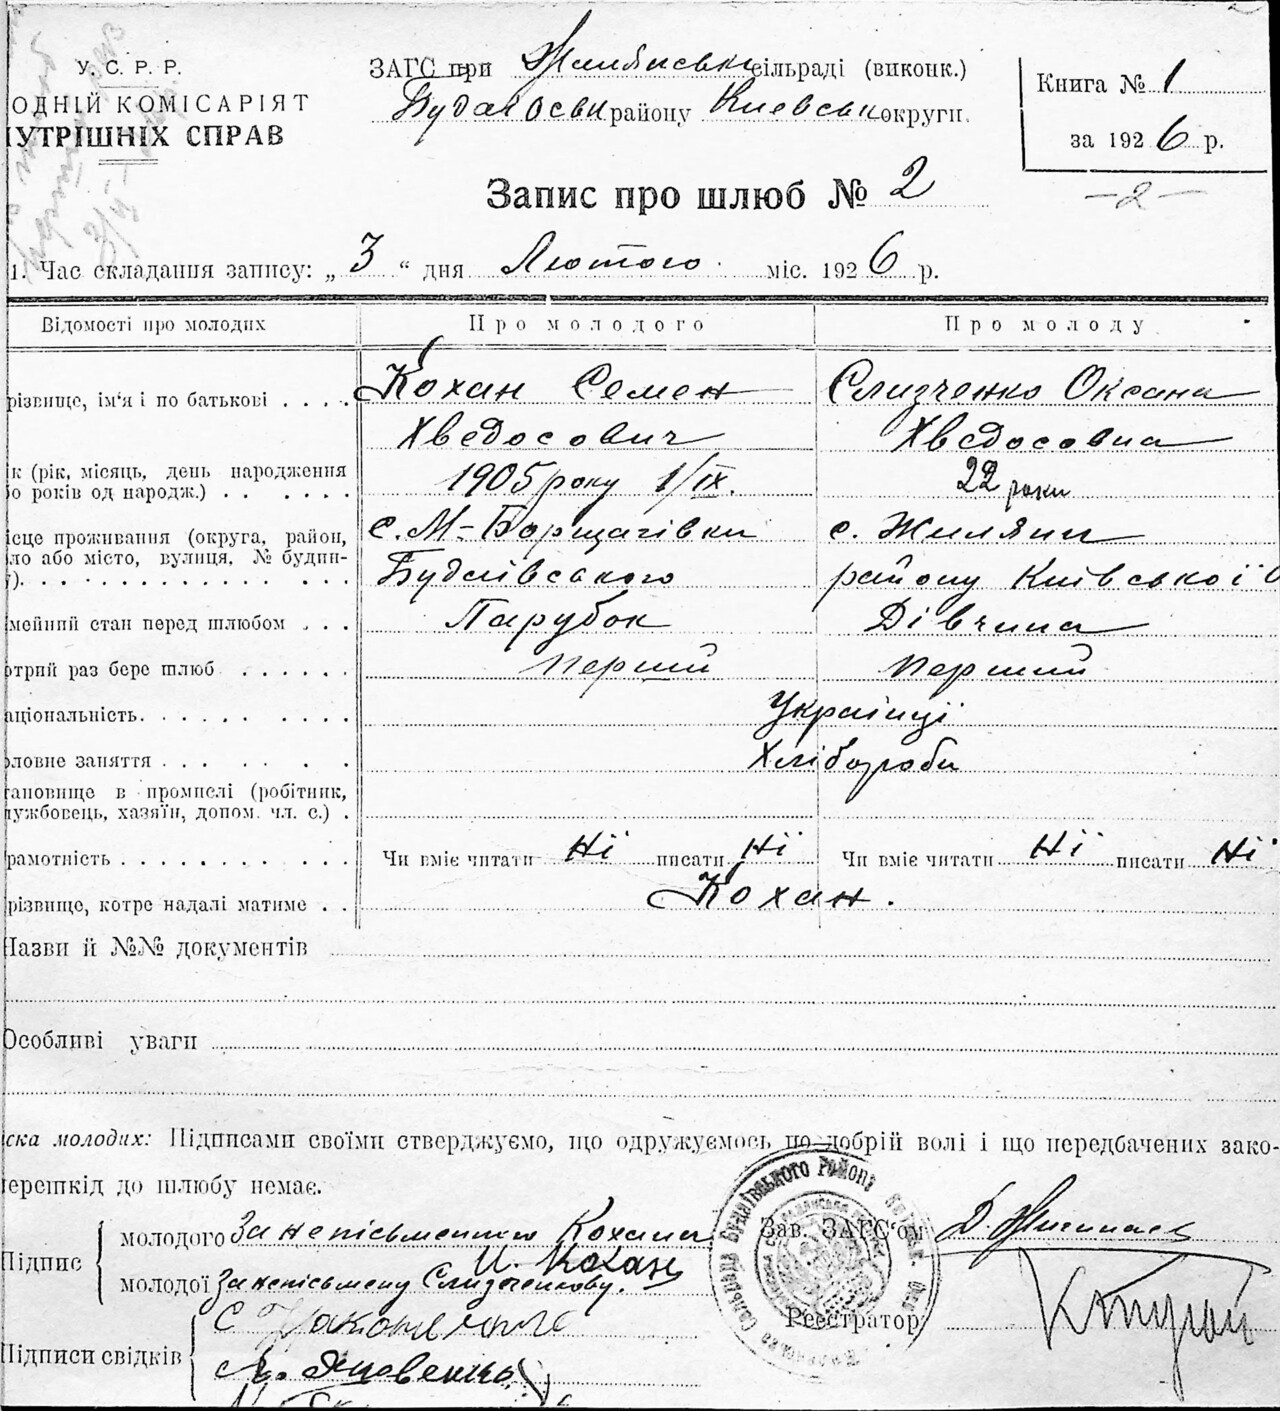 У. С. Р. Р.
ОДНІЙ КОМІСАРІЯТ
НУТРІШНІХ СПРАВ
ЗАГС при Жилянські сільраді (виконк.)
Будаївськ району Київськ округи.
Книга № 1
за 1926 р.
Запис про шлюб № 2
— 2 —
1. Час складання запису: „ 3 “ дня Лютого міс. 1926 р.
Відомості про молодих Про молодого Про молоду
різвище, ім'я і по батькові . . . . Кохан Семен Слизченко Оксана
Хведосович Хведосовна
ік (рік, місяць, день народження 1905 року 1/IX. 22 роки
бо років од народж.) . . . . . .
ісце проживання (округа, район, с. М-Борщагівки с. Жиляни
ло або місто, вулиця, № будин-
у). . . . . . . . . . . . Будаївського району Київської о
мейний стан перед шлюбом . . . Парубок Дівчина
отрий раз бере шлюб . . . . . . перший перший
аціональність. . . . . . . . . . Українці
ловне заняття . . . . . . . Хлібороби
тановище в промислі (робітник,
лужбовець, хазяїн, допом. чл. с.) .
рамотність . . . . . . . . . . Чи вміє читати Ні писати Ні Чи вміє читати Ні писати Ні
різвище, котре надалі матиме . . Кохан.
Назви й №№ документів
Особливі уваги
ска молодих: Підписами своїми стверджуємо, що одружуємось по добрій волі і що передбачених зако-
ерешкід до шлюбу немає.
Підпис
молодого За непісьменого Кохана
И. Кохан
молодої За непісьмену Слизченкову.
Зав. ЗАГС'ом
Реєстратор
Підписи свідків
Яковенко